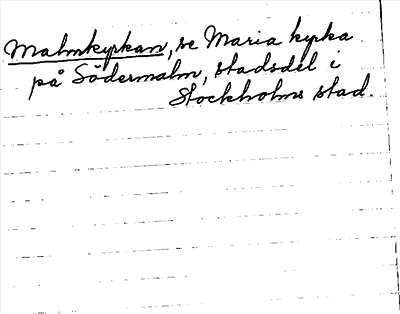 Malmkyrkan, se Maria kyrka
på Södermalm, stadsdel i
Stockholms stad.